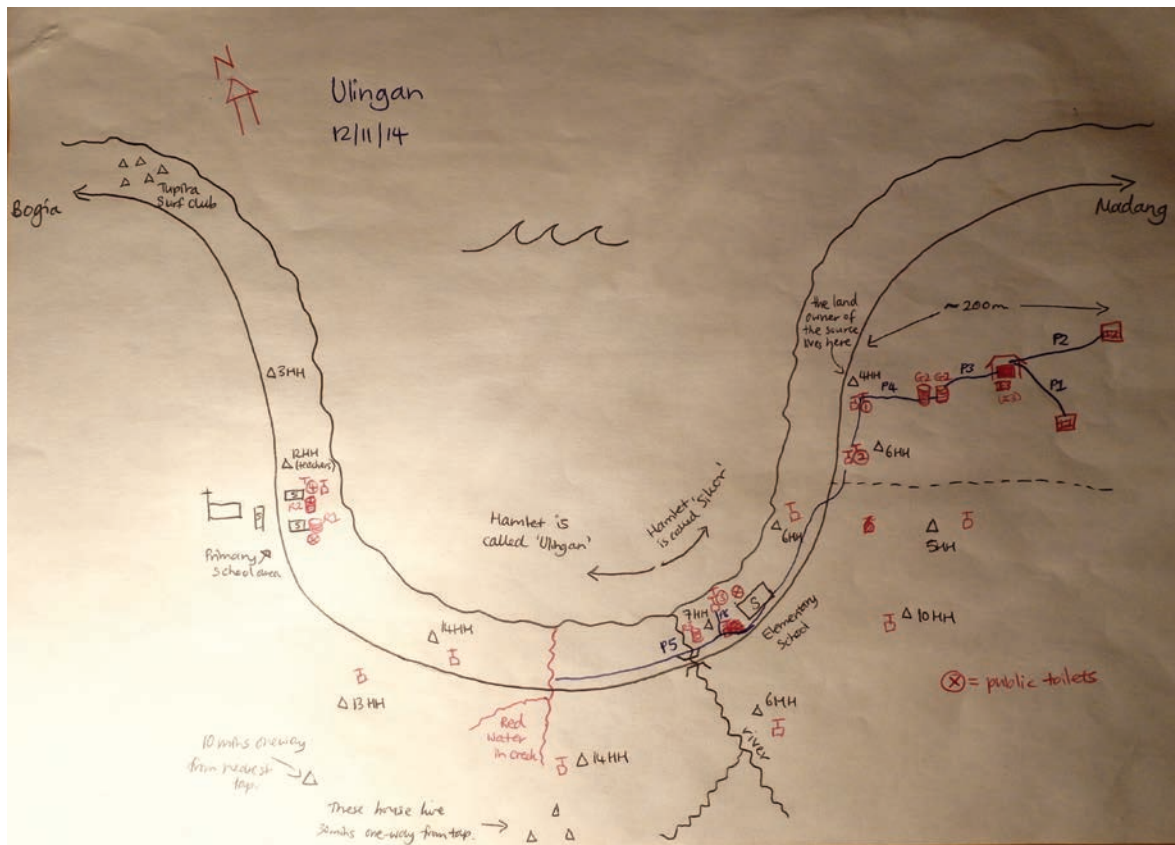 N
Ulingan
12/11/14
Tupira
Surf club
Bogia
Madang
the land
owner of
the source
lives here
~200m
P2
P3
P1
4HH
P4
G2 G2
1
2
6HH
3HH
12HH
(teachers)
S
R2
S
S
R1
Primary
School area
Hamlet is
called 'Ulingan'
Hamlet 'Sikor'
is called
6HH
5HH
10HH
7HH
3
P6
S
Elementary
School
P5
14HH
13HH
Red
Water
in creek
River
6HH
14HH
= public toilets
10 mins one way
from nearest
tap.
These house live
30mins one-way from tap.